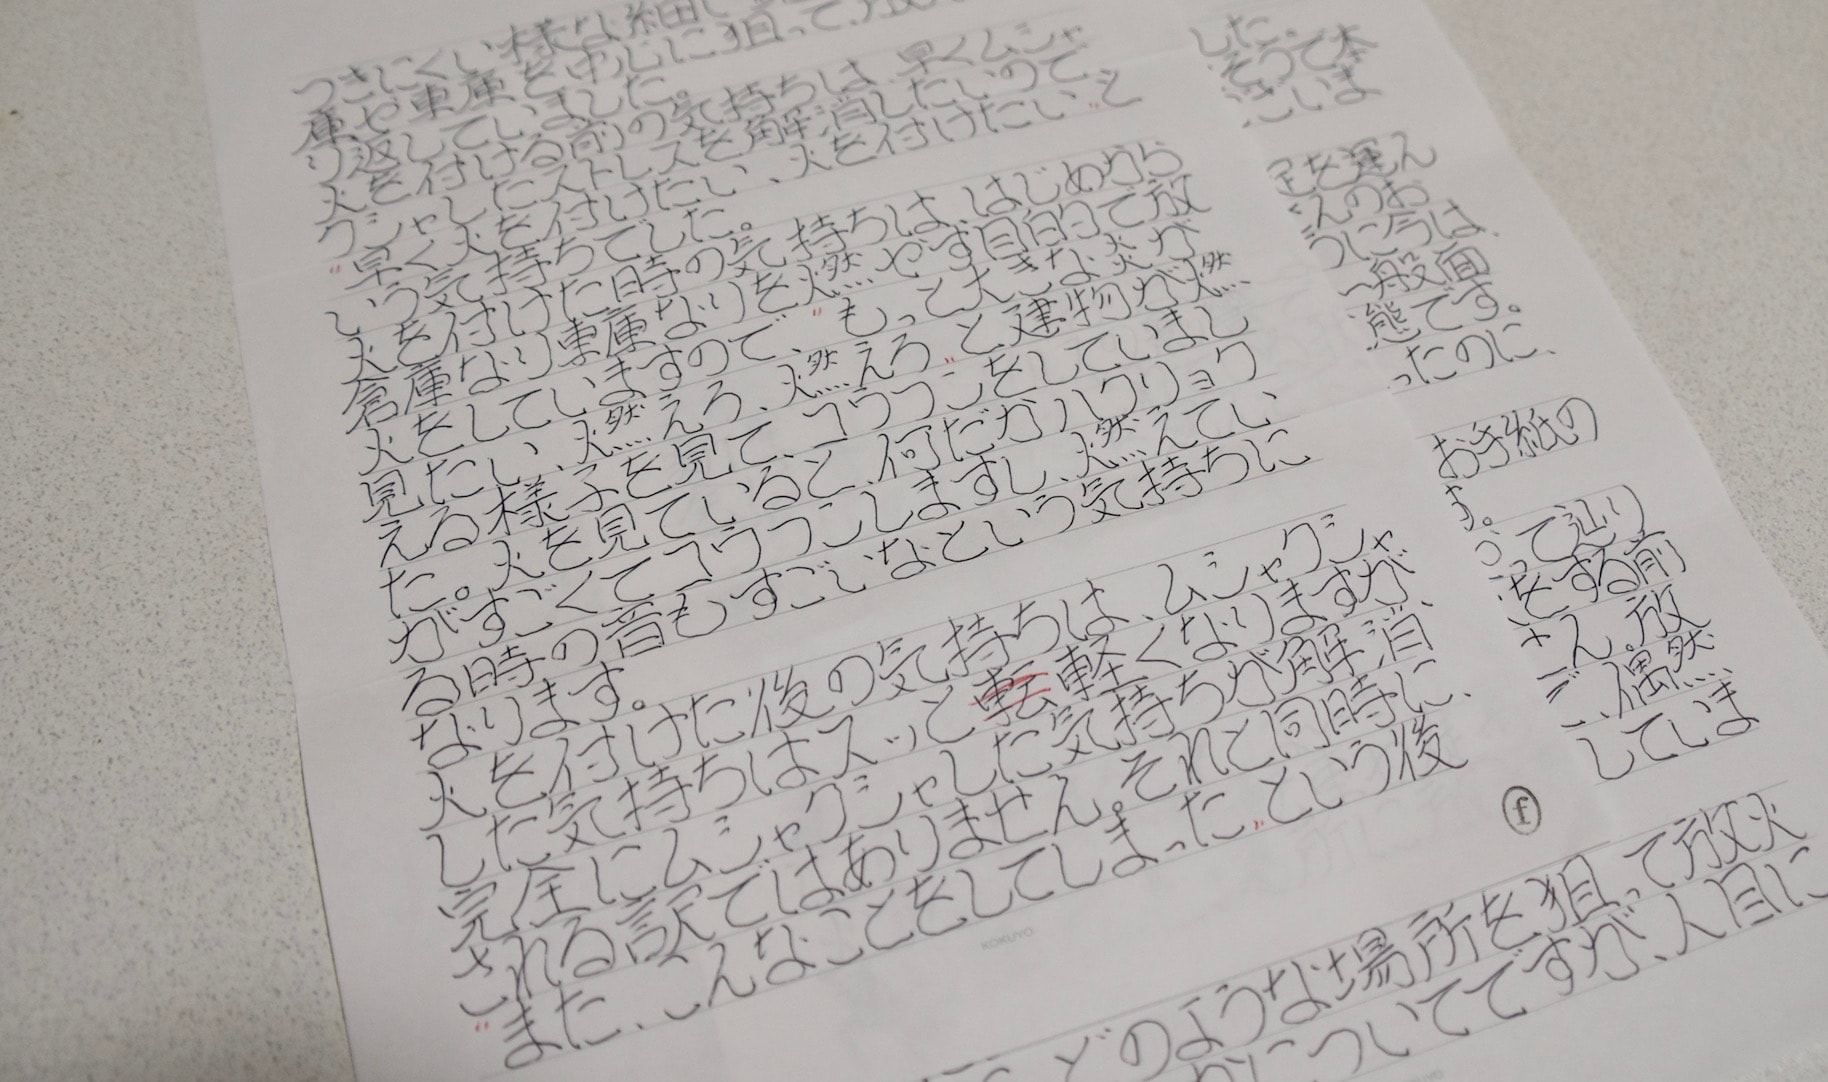 つきにくい様な細し
庫や車庫を中心に狙って、放火
り返していました。
火を付ける前の気持ちは、早くムシャ
クシャしたストレスを解消したいので
"早く火を付けたい、火を付けたい"と
いう気持ちでした。
火を付けた時の気持ちは、はじめから
倉庫なり車庫なりを燃やす目的で放
火をしていますので、"もっと大きな火が
見たい、燃えろ、燃えろ"と建物が燃
える様子を見て、コウフンをしていまし
た。火を見ていると、何だかハクリョク
がすごくてコウフンしますし、燃えてい
る時の音もすごいなという気持ちに
なります。
火を付けた後の気持ちは、ムシャクシャ
した気持ちはスッと転軽くなりますが、
完全にムシャクシャした気持ちが解消
される訳ではありません。それと同時に、
"また、こんなことをしてしまった"という後
KOKUYO
した。
そうで本
さいま
足を運ん
さんのお
うに今は、
一般面
態です。
ったのに、
お手紙の
す。
って辿り
をする前
さん。放
で、偶然、
していま
f
どのような場所を狙って放火
かについてですが、人目に